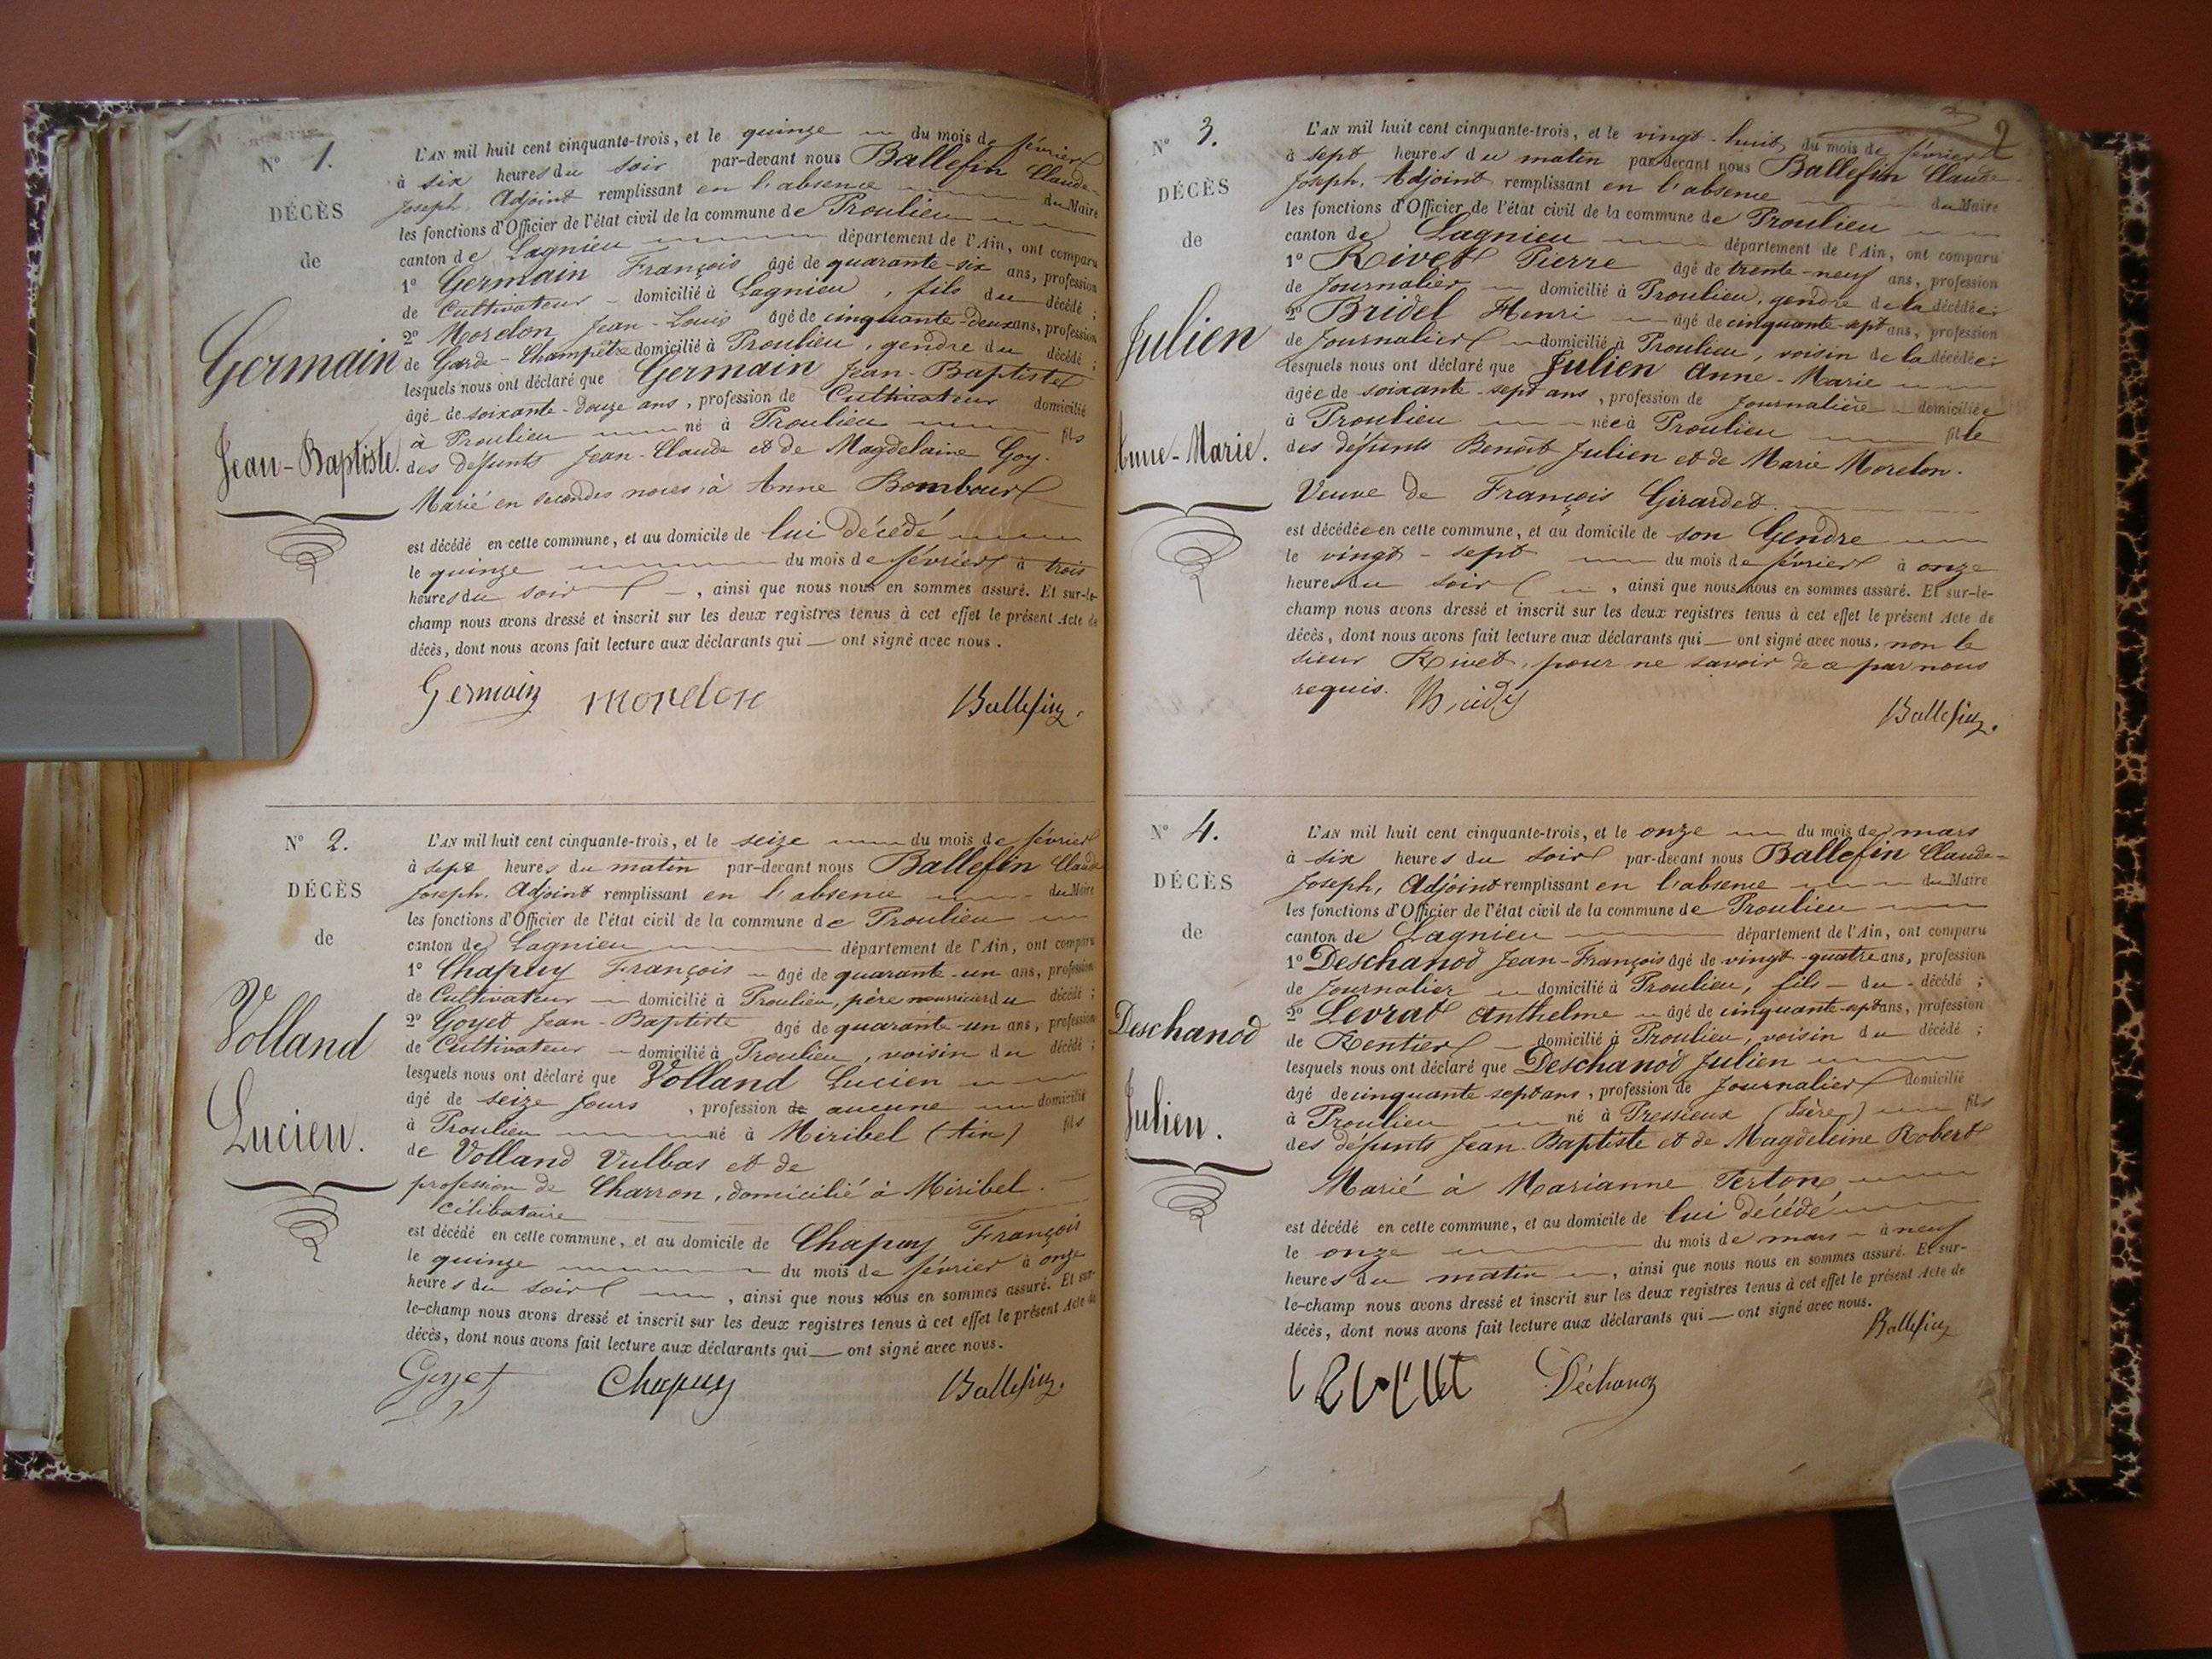 N° 1.
DÉCÈS
de
Germain
Jean-Baptiste.
L'AN mil huit cent cinquante-trois, et le quinze du mois de février
à six heures du soir par-devant nous Ballefin Claude-
Joseph, Adjoint remplissant en l'absence du Maire
les fonctions d'Officier de l'état civil de la commune de Proulieu
canton de Lagnieu département de l'Ain, ont comparu
1° Germain François âgé de quarante-six ans, profession
de Cultivateur domicilié à Lagnieu, fils du décédé;
2° Morelon Jean-Louis âgé de cinquante-deux ans, profession
de Garde-Champêtre domicilié à Proulieu, gendre du décédé;
lesquels nous ont déclaré que Germain Jean-Baptiste
âgé de soixante-douze ans, profession de Cultivateur domicilié
à Proulieu né à Proulieu fils
des défunts Jean-Claude et de Magdelaine Goy.
Marié en secondes noces à Anne Bombour
est décédé en cette commune, et au domicile de lui décédé
le quinze du mois de février à trois
heures du soir, ainsi que nous nous en sommes assuré. Et sur-le-
champ nous avons dressé et inscrit sur les deux registres tenus à cet effet le présent Acte de
décès, dont nous avons fait lecture aux déclarants qui — ont signé avec nous.
Germain morelon Ballefin
N° 2.
DÉCÈS
de
Volland
Lucien.
L'AN mil huit cent cinquante-trois, et le seize du mois de février
à sept heures du matin par-devant nous Ballefin Claude
Joseph. Adjoint remplissant en l'absence du Maire
les fonctions d'Officier de l'état civil de la commune de Proulieu
canton de Lagnieu département de l'Ain, ont comparu
1° Chapuy François âgé de quarante-un ans, profession
de Cultivateur domicilié à Proulieu, père nourricier du décédé;
2° Goyet Jean-Baptiste âgé de quarante-un ans, profession
de Cultivateur domicilié à Proulieu, voisin du décédé;
lesquels nous ont déclaré que Volland Lucien
âgé de seize jours, profession de aucune domicilié
à Proulieu né à Miribel (Ain) fils
de Volland Vulbas et de
profession de Charron, domicilié à Miribel.
célibataire
est décédé en cette commune, et au domicile de Chapuy François
le quinze du mois de février à onze
heures du soir, ainsi que nous nous en sommes assuré. Et sur-
le-champ nous avons dressé et inscrit sur les deux registres tenus à cet effet le présent Acte de
décès, dont nous avons fait lecture aux déclarants qui — ont signé avec nous.
Goyet Chapuy Ballefin
2
N° 3.
DÉCÈS
de
Julien
Anne-Marie.
L'AN mil huit cent cinquante-trois, et le vingt-huit du mois de février
à sept heures du matin par-devant nous Ballefin Claude
Joseph, Adjoint remplissant en l'absence du Maire
les fonctions d'Officier de l'état civil de la commune de Proulieu
canton de Lagnieu département de l'Ain, ont comparu
1° Rivet Pierre âgé de trente-neuf ans, profession
de Journalier domicilié à Proulieu, gendre de la décédée;
2° Bridel Henri âgé de cinquante-sept ans, profession
de Journalier domicilié à Proulieu, voisin de la décédée;
lesquels nous ont déclaré que Julien Anne-Marie
âgée de soixante-sept ans, profession de Journalière domiciliée
à Proulieu née à Proulieu fille
des défunts Benoit Julien et de Marie Morelon.
Veuve de François Girardet.
est décédée en cette commune, et au domicile de son Gendre
le vingt-sept du mois de février à onze
heures du soir, ainsi que nous nous en sommes assuré. Et sur-le-
champ nous avons dressé et inscrit sur les deux registres tenus à cet effet le présent Acte de
décès, dont nous avons fait lecture aux déclarants qui — ont signé avec nous, non le
sieur Rivet, pour ne savoir de ce par nous
requis. Ballefin
N° 4.
DÉCÈS
de
Deschanod
Julien.
L'AN mil huit cent cinquante-trois, et le onze du mois de mars
à six heures du soir par-devant nous Ballefin Claude-
Joseph, Adjoint remplissant en l'absence du Maire
les fonctions d'Officier de l'état civil de la commune de Proulieu
canton de Lagnieu département de l'Ain, ont comparu
1° Deschanod Jean-François âgé de vingt-quatre ans, profession
de Journalier domicilié à Proulieu, fils du décédé;
2° Levrat Anthelme âgé de cinquante-sept ans, profession
de Rentier domicilié à Proulieu, voisin du décédé;
lesquels nous ont déclaré que Deschanod Julien
âgé de cinquante-sept ans, profession de Journalier domicilié
à Proulieu né à Pressieux (Isère) fils
des défunts Jean-Baptiste et de Magdeleine Robert
Marié à Marianne Terton
est décédé en cette commune, et au domicile de lui décédé,
le onze du mois de mars à neuf
heures du matin, ainsi que nous nous en sommes assuré. Et sur-
le-champ nous avons dressé et inscrit sur les deux registres tenus à cet effet le présent Acte de
décès, dont nous avons fait lecture aux déclarants qui — ont signé avec nous.
Ballefin
Déchanoz